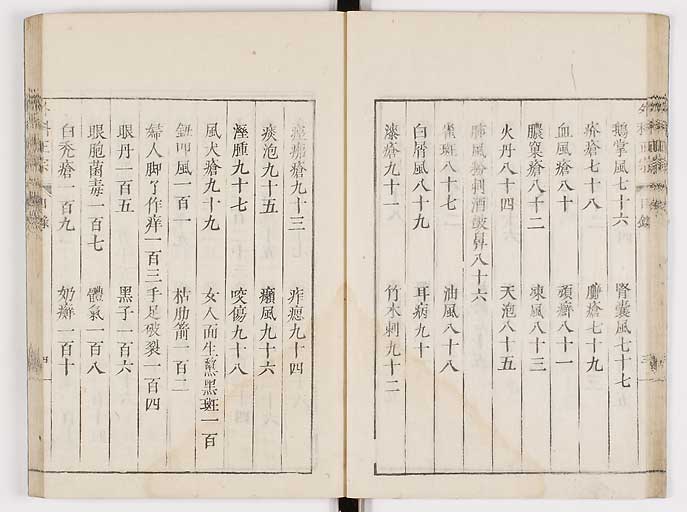 鵝掌風七十六 腎囊風七十七
疥瘡七十八 臁瘡七十九
血風瘡八十 頑癬八十一
膿窠瘡八十二 凍風八十三
火丹八十四 天泡八十五
肺風粉刺酒齄鼻八十六
雀斑八十七 油風八十八
白屑風八十九 耳病九十
漆瘡九十一 竹木刺九十二
瘡九十三 痄腮九十四
痰泡九十五 癩風九十六
溼腫九十七 咬傷九十八
風犬瘡九十九 女人面生黧黑斑一百
鈕叩風一百一 枯肋箭一百二
婦人脚了作痒一百三 手足破裂一百四
眼丹一百五 黑子一百六
眼胞菌毒一百七 體氣一百八
白禿瘡一百九 奶癬一百十
外科正宗 目錄 四